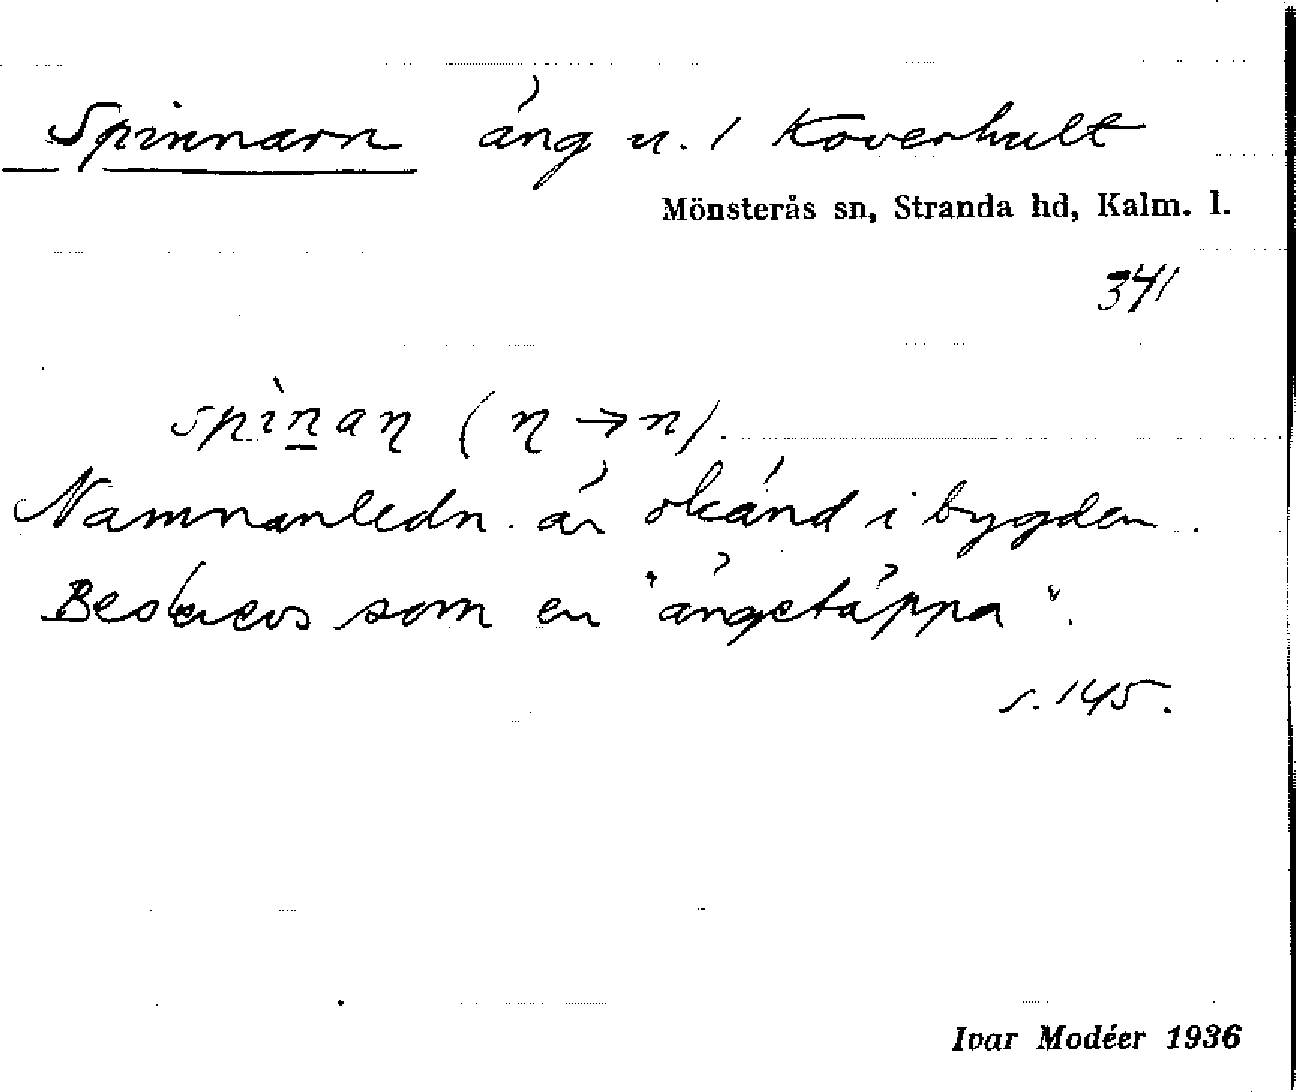 Spinnarn äng u. / Koverhult
Mönsterås sn, Stranda hd, Kalm. l.
341
spìnaɳ (ɳ → n).
Namnanledn. är okänd i bygden.
Beskrevs som en "ängetäppa".
s. 145.
Ivar Modéer 1936